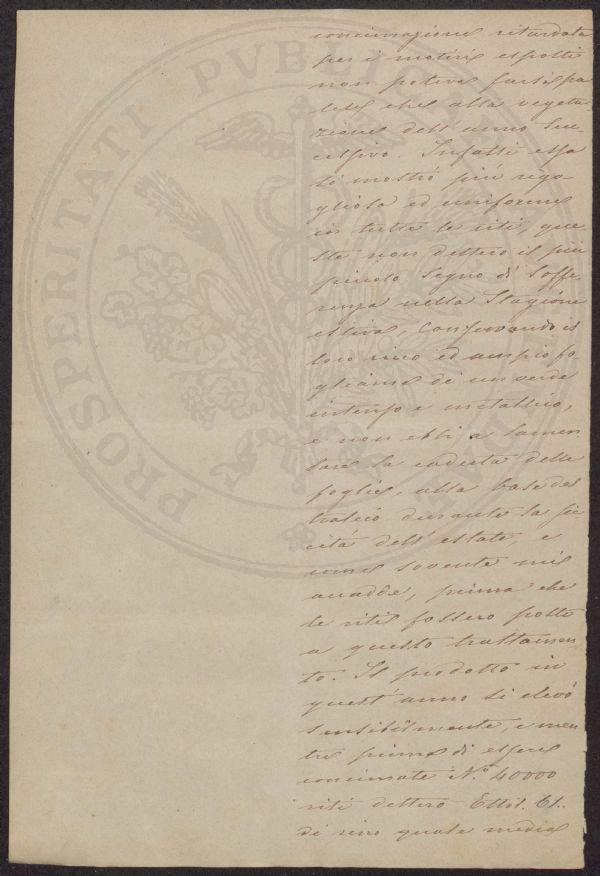 PROSPERITATI PVBLI
concimazione ritardata
per i motivi esposti
non poteva farsi pa
lese che alla vegeta
zione dell'anno suc-
cessivo. Infatti essa
si mostrò più rigo-
gliosa ed uniforme
in tutte le viti, que
ste non dettero il più
piccolo segno di soffe
renza nella stagione
estiva, conservando il
loro ricco ed ampio fo-
gliame di un verde
intenso e metallico,
e non ebbi a lamen
tare la caduta delle
foglie, alla base del
tralcio durante la sic
cità dell'estate, e
come sovente mi
accadde, prima che
le viti fossero poste
a questo trattamen
to. Il prodotto in
quest'anno si elevò
sensibilmente, e men
tre prima di essere
concimate N.º 40000
viti dettero Ettol. 61..
di vino quale media